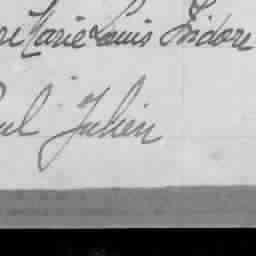 re Marie Louis Isidore
ul Julien